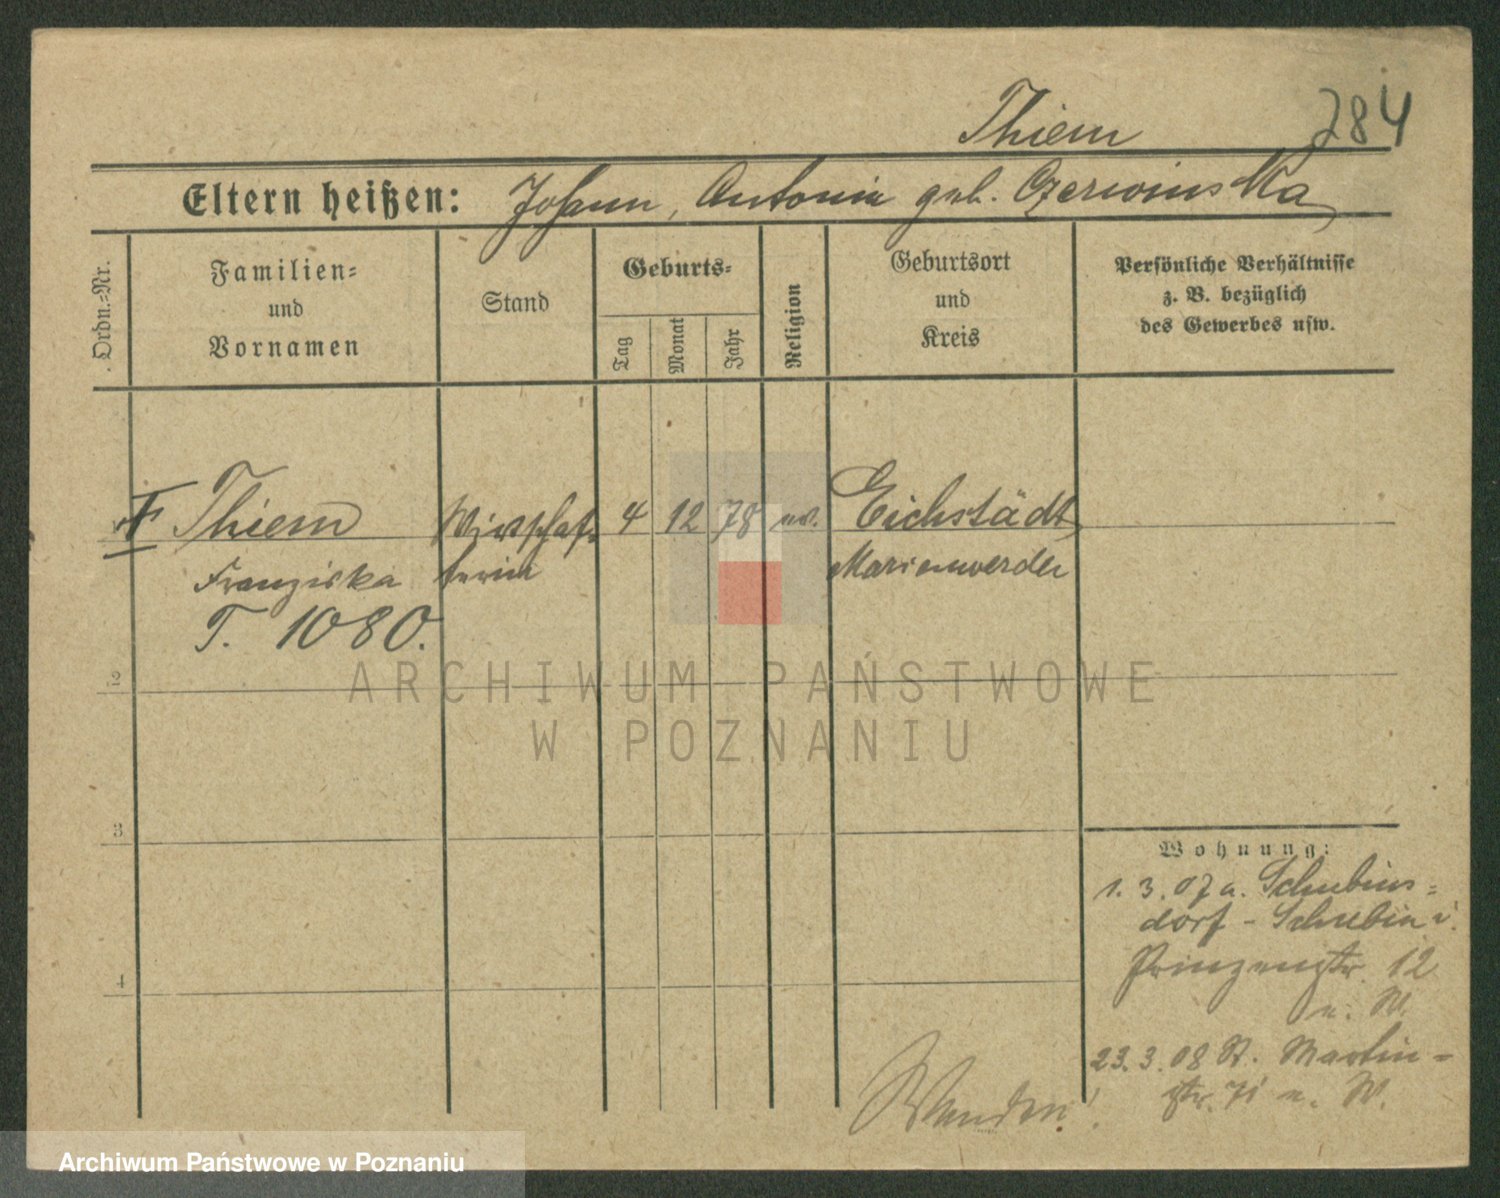 Thiem 784
Eltern heißen: Johann, Antonie geb. Czerwinska
Ordn.-Nr.
Familien-
und
Vornamen
Stand
Geburts-
Tag
Monat
Jahr
Religion
Geburtsort
und
Kreis
Persönliche Verhältnisse
z. B. bezüglich
des Gewerbes usw.
Thiem Wirtschaf- 4 12 78 ev. Eichstädt
Franziska terin Marienwerder
T. 1080.
2
3
4
Wohnung:
1. 3. 07 a. Schubins-
dorf - Schubin i.
Prinzenstr. 12
n. W.
23. 3. 08 St. Martin-
str. 71 n. W.
Wenden!
ARCHIWUM PAŃSTWOWE
W POZNANIU
Archiwum Państwowe w Poznaniu